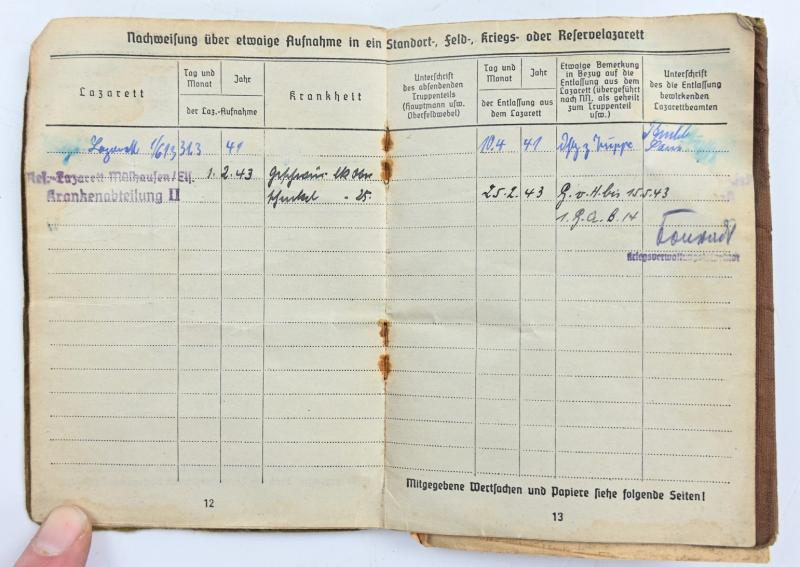 Nachweisung über etwaige Aufnahme in ein Standort-, Feld-, Kriegs- oder Reservelazarett
Lazarett
Tag und Monat
Jahr
der Laz.-Aufnahme
Krankheit
Unterschrift
des absendenden
Truppenteils
(Hauptmann usw.
Oberfeldwebel)
Tag und Monat
Jahr
der Entlassung aus
dem Lazarett
Etwaige Bemerkung
in Bezug auf die
Entlassung aus dem
Lazarett (übergeführt
nach NN, als geheilt
zum Truppenteil
usw.)
Unterschrift
des die Entlassung
bewirkenden
Lazarettbeamten
Lazarett 1/613 31.3 41 10.4 41 z. Truppe
Res.-Lazarett Mülhausen/Els. 1. 2. 43 Geschwür
Krankenabteilung II 25. 25.2. 43 G. v. H. bis 15.5.43
1. G. a. B. 14
Mitgegebene Wertsachen und Papiere siehe folgende Seiten!
12
13